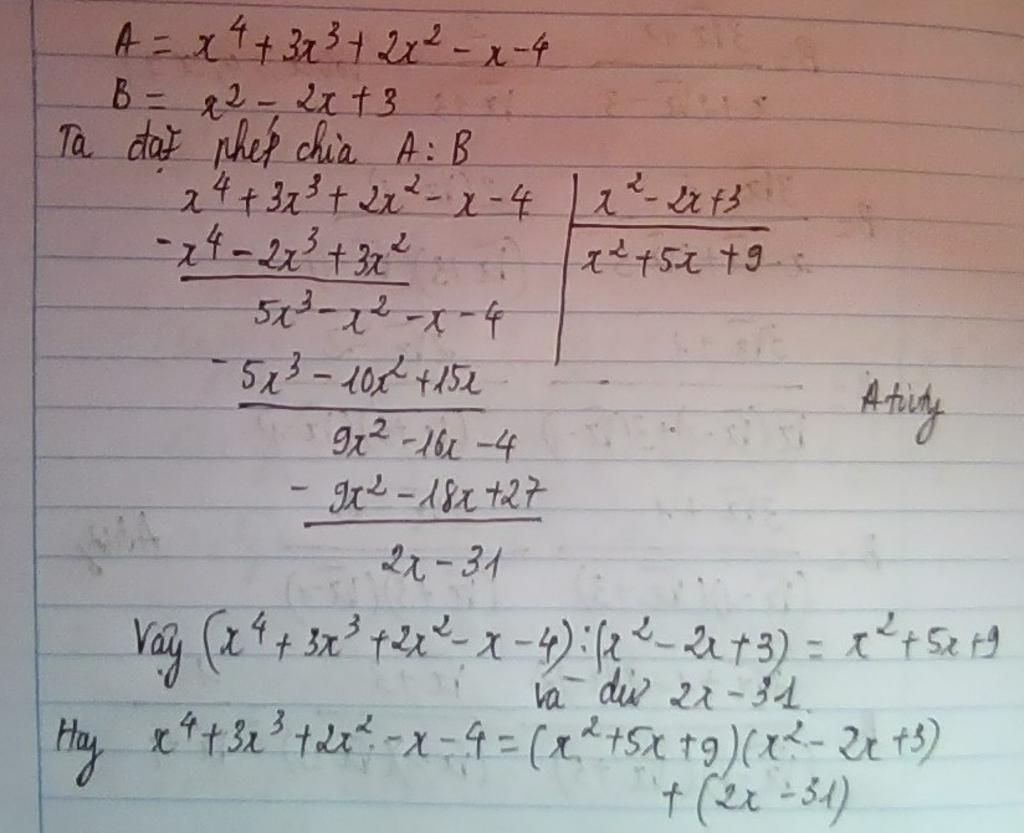 A = x⁴ + 3x³ + 2x² - x - 4
B = x² - 2x + 3
Ta đặt phép chia A : B
x⁴ + 3x³ + 2x² - x - 4 | x² - 2x + 3
- x⁴ - 2x³ + 3x² | x² + 5x + 9
5x³ - x² - x - 4
- 5x³ - 10x² + 15x
9x² - 16x - 4
- 9x² - 18x + 27
2x - 31
Vậy (x⁴ + 3x³ + 2x² - x - 4) : (x² - 2x + 3) = x² + 5x + 9
và dư 2x - 31.
Hay x⁴ + 3x³ + 2x² - x - 4 = (x² + 5x + 9)(x² - 2x + 3)
+ (2x - 31)